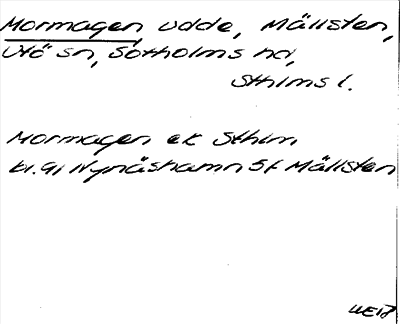 Mormagen, udde, Mällsten,
Utö sn, Sotholms hd,
Sthlms l.
Mormagen ek Sthlm
bl. 91 Nynäshamn 5f Mällsten